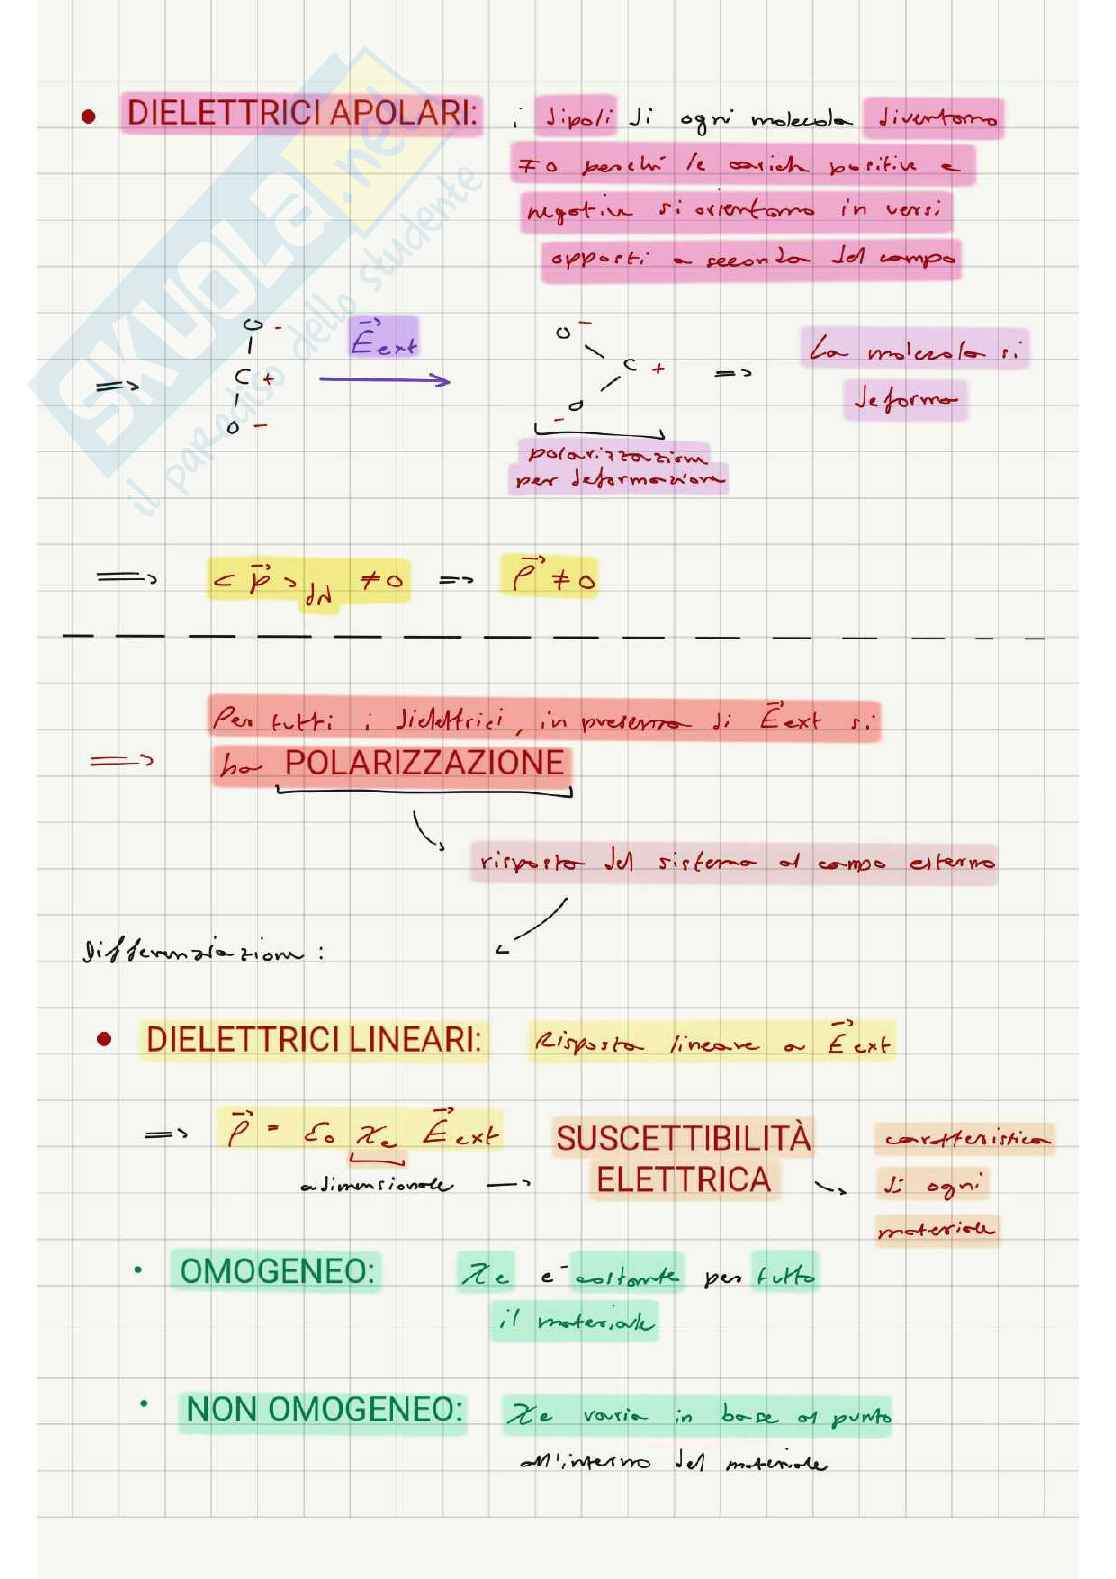 SKUOLA.net
il paradiso dello studente
• DIELETTRICI APOLARI: i dipoli di ogni molecola diventano
≠ 0 perché le cariche positive e
negative si orientano in versi
opposti a seconda del campo
O -
E⃗ext
O -
La molecola si
⇒ C + C + ⇒
deforma
O - O -
polarizzazione
per deformazione
⇒ < p⃗ >dN ≠ 0 ⇒ P⃗ ≠ 0
Per tutti i dielettrici, in presenza di E⃗ext si
⇒ ha POLARIZZAZIONE
risposta del sistema al campo esterno
Differenziazione:
• DIELETTRICI LINEARI: Risposta lineare a E⃗ext
⇒ P⃗ = ε0 χe E⃗ext SUSCETTIBILITÀ caratteristica
adimensionale → ELETTRICA → di ogni
materiale
• OMOGENEO: χe e' costante per tutto
il materiale
• NON OMOGENEO: χe varia in base al punto
all'interno del materiale